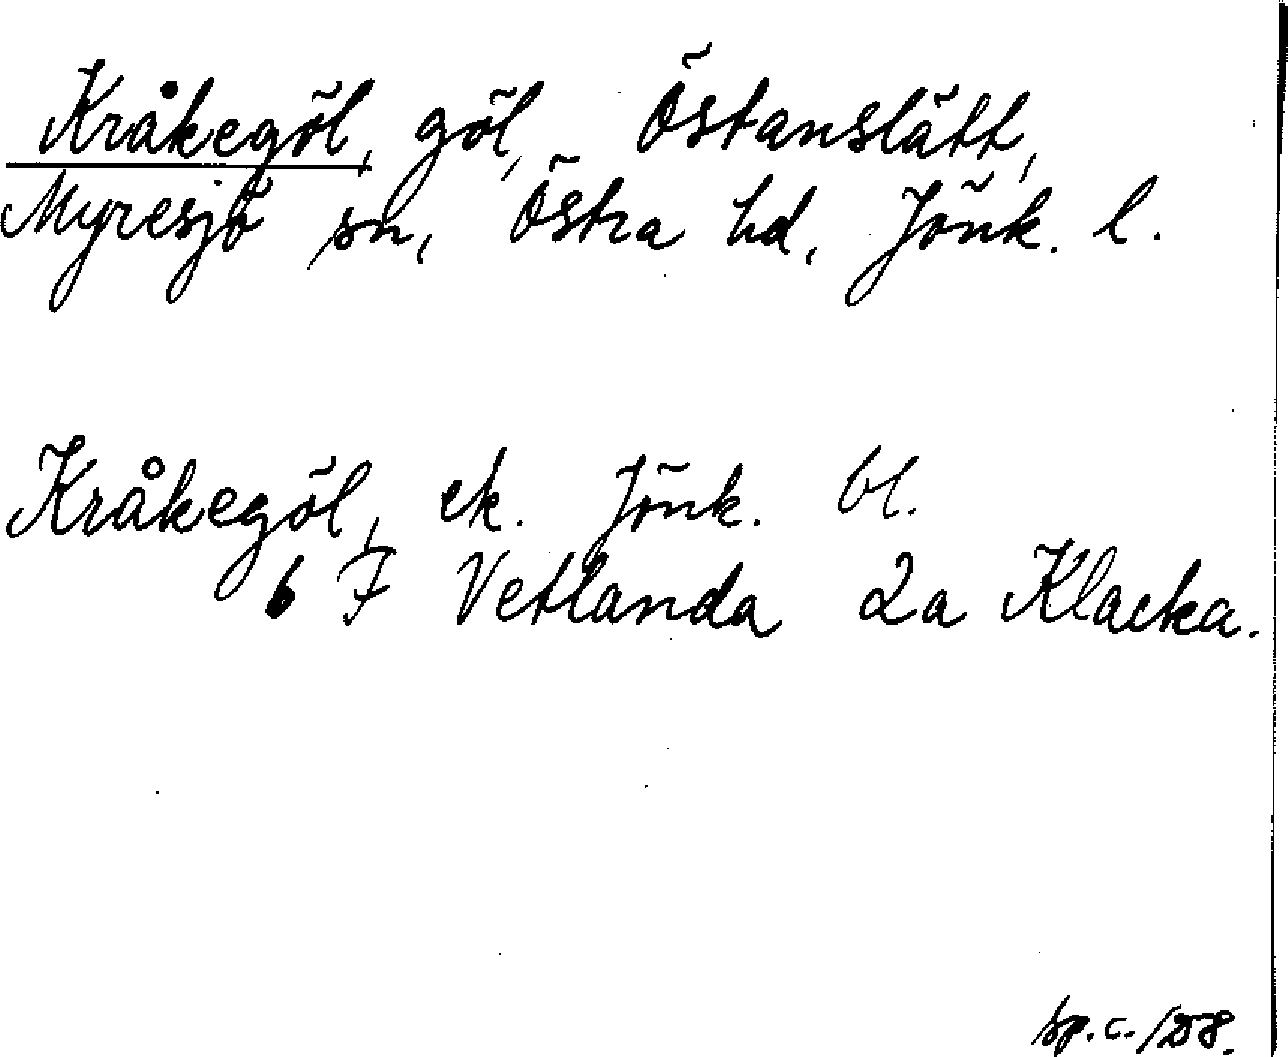 Kråkegöl, göl, Östanslätt,
Myresjö sn, Östra hd, Jönk. l.
Kråkegöl, ek. Jönk. bl.
6 F Vetlanda 2a Klacka.